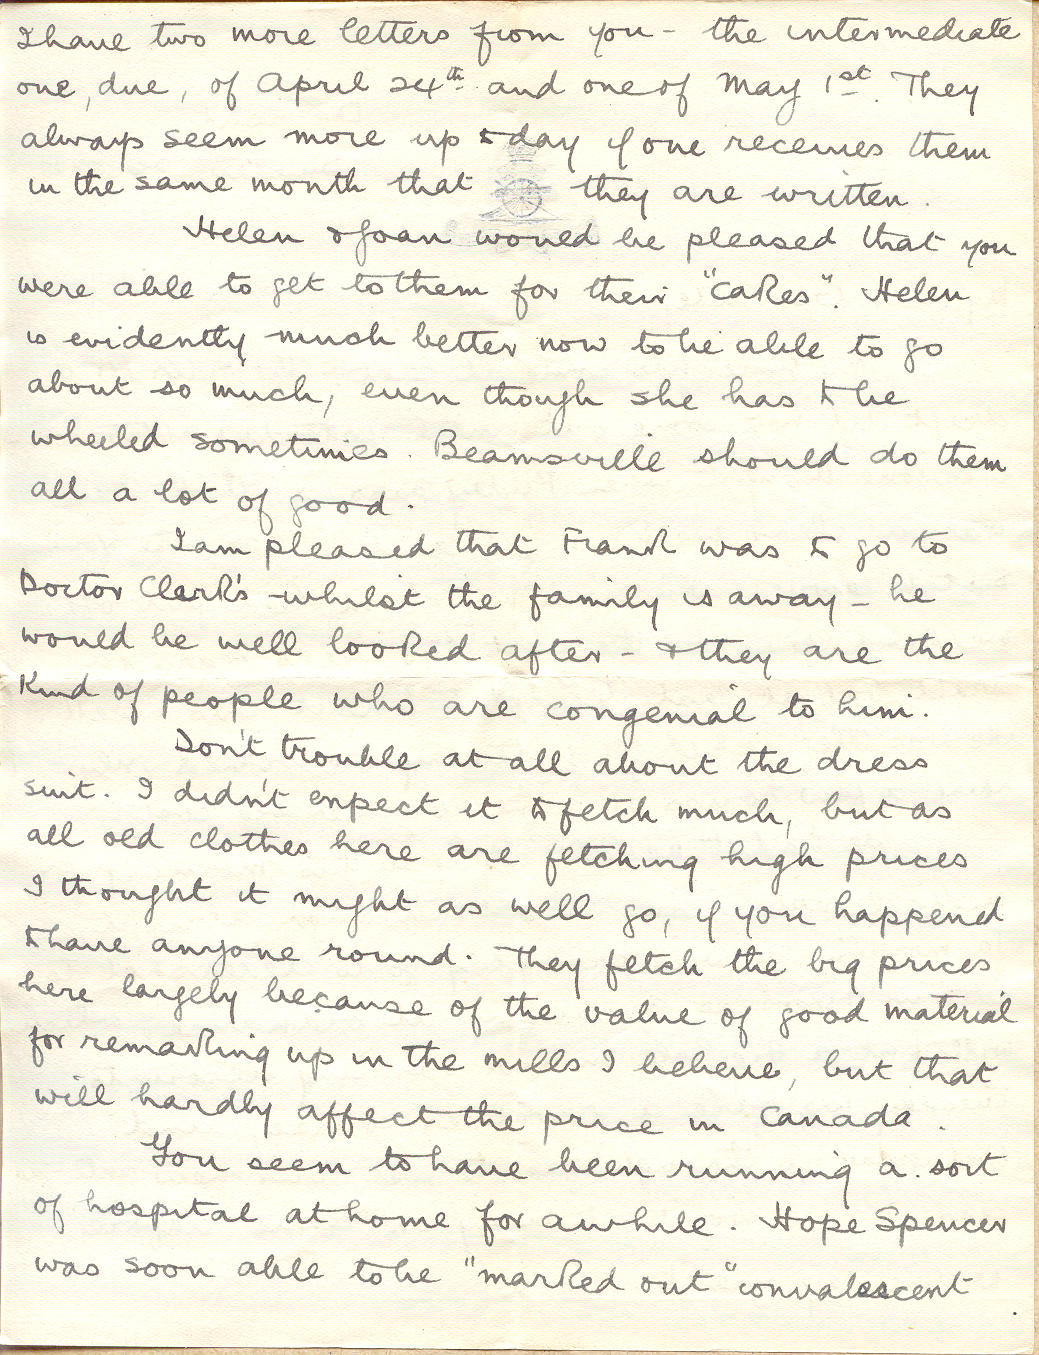 I have two more letters from you - the intermediate
one, due, of April 24th and one of May 1st. They
always seem more up to day if one receives them
in the same month that they are written.
Helen & Joan would be pleased that you
were able to get to them for their "cakes". Helen
is evidently much better now to be able to go
about so much, even though she has to be
wheeled sometimes. Beamsville should do them
all a lot of good.
I am pleased that Frank was to go to
Doctor Clark's whilst the family is away - he
would be well looked after - & they are the
kind of people who are congenial to him.
Don't trouble at all about the dress
suit. I didn't expect it to fetch much, but as
all old clothes here are fetching high prices
I thought it might as well go, if you happened
to have anyone round. They fetch the big prices
here largely because of the value of good material
for remaking up in the mills I believe, but that
will hardly affect the price in Canada.
You seem to have been running a sort
of hospital at home for awhile. Hope Spencer
was soon able to be "marked out" convalescent